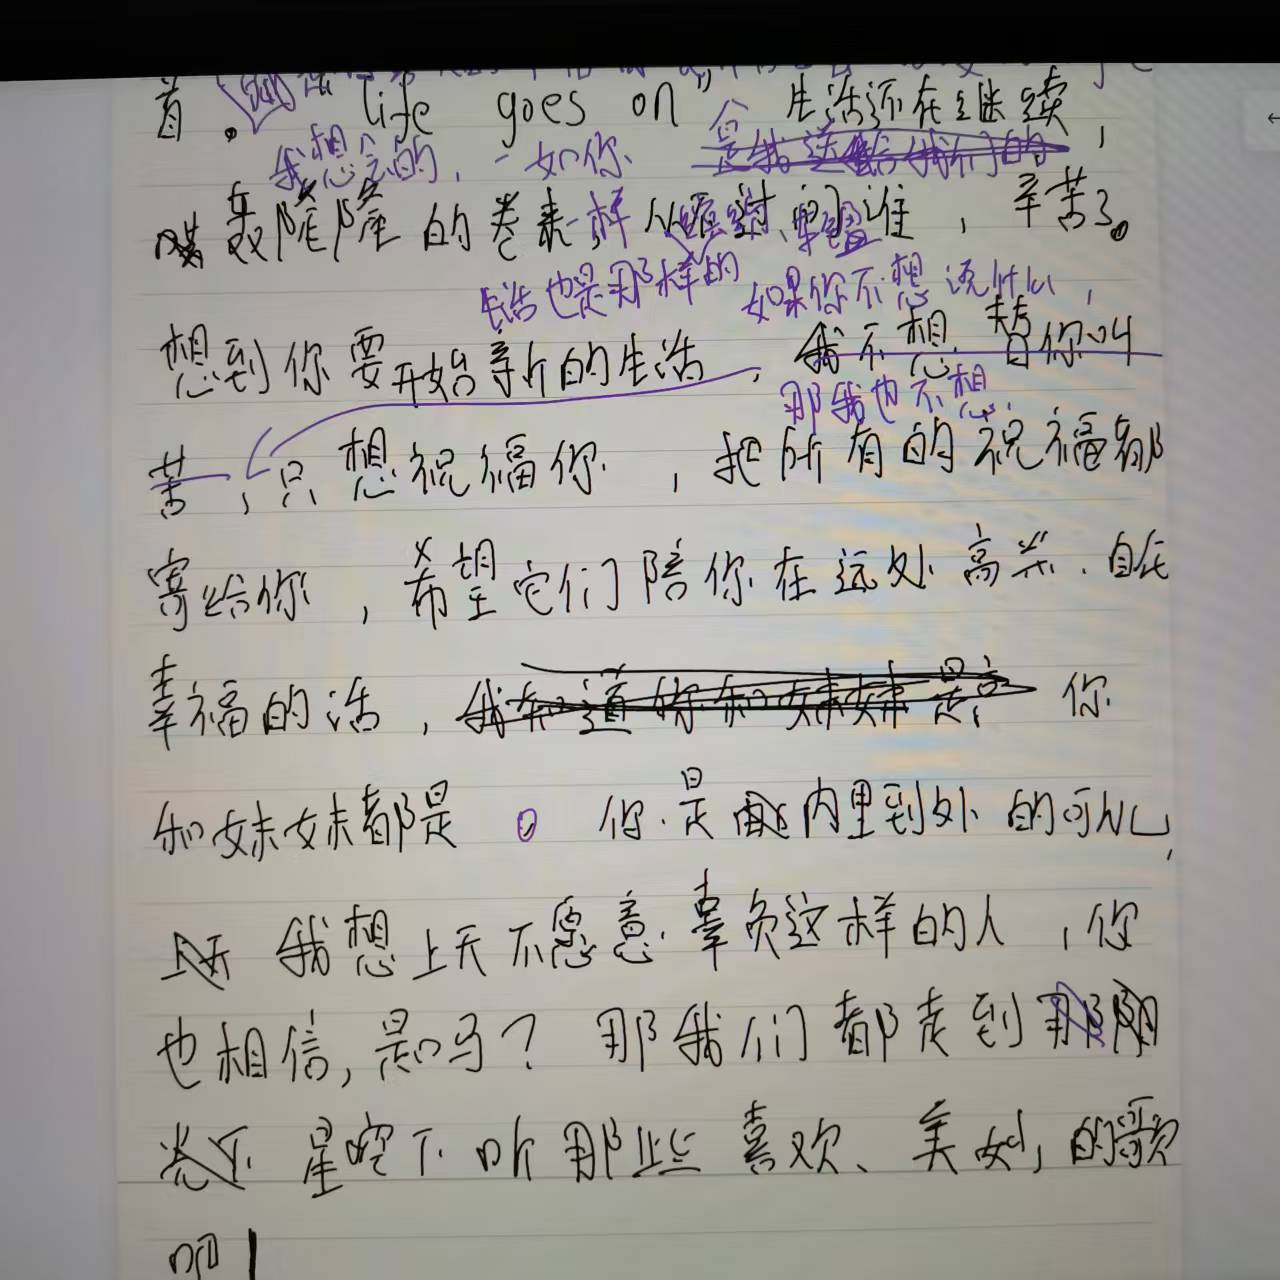 首。"life goes on" 生活还在继续，
我想会的，一如你
轰隆隆的卷来一样 谁，辛苦了。
生活也是那样的 如果你不想说什么，
想到你要开始新的生活，我不想替你叫
那我也不想
苦，只想祝福你，把所有的祝福都
寄给你，希望它们陪你在远处高兴、自在
幸福的活，你
和妹妹都是 你是内里到外的可儿，
我想上天不愿意辜负这样的人，你
也相信，是吗？那我们都走到
星空下听那些喜欢、美妙的歌
吧！